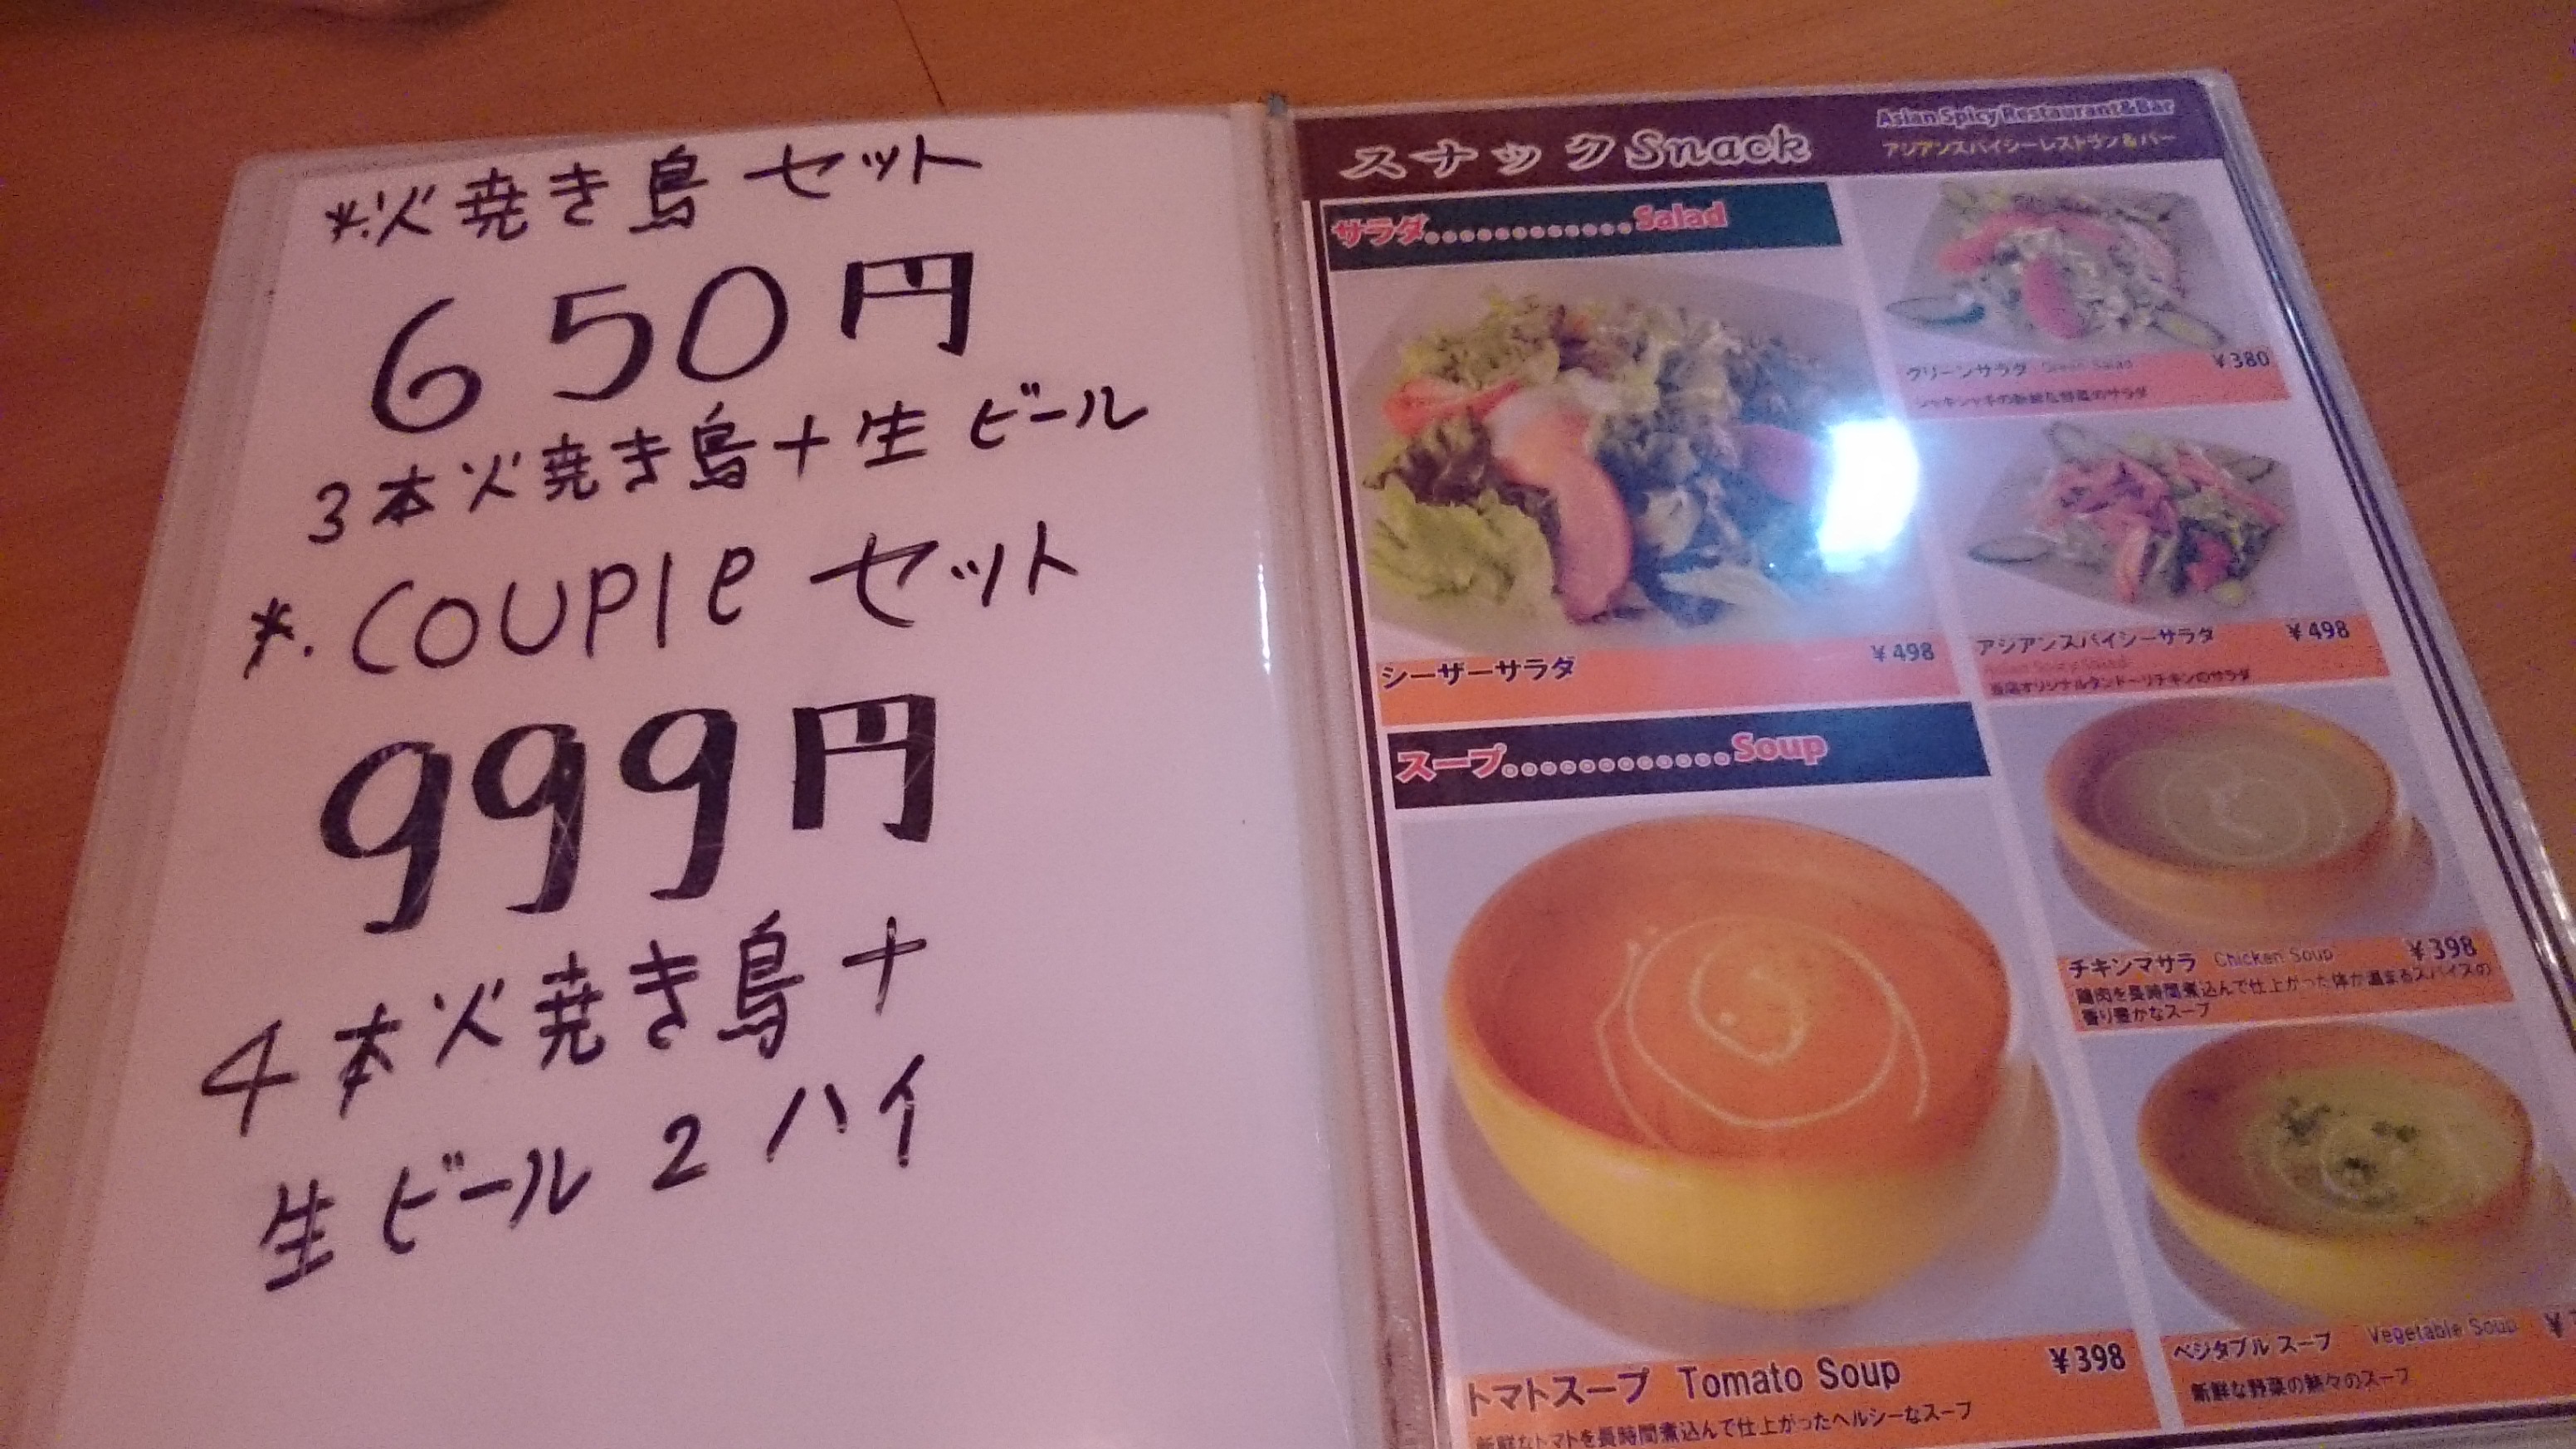 *.火焼き鳥セット
650円
3本火焼き鳥+生ビール
*.COUPLeセット
999円
4本火焼き鳥+
生ビール2ハイ
スナックSnack
Asian Spicy Restaurant&Bar
アジアンスパイシーレストラン&バー
サラダ.............Salad
グリーンサラダ Green Salad ¥380
シャキシャキの新鮮な野菜のサラダ
シーザーサラダ ¥498
アジアンスパイシーサラダ ¥498
Asian Spicy Salad
当店オリジナルタンドーリチキンのサラダ
スープ.............Soup
チキンマサラ Chicken Soup ¥398
鶏肉を長時間煮込んで仕上がった体が温まるスパイスの
香り豊かなスープ
トマトスープ Tomato Soup ¥398
新鮮なトマトを長時間煮込んで仕上がったヘルシーなスープ
ベジタブル スープ Vegetable Soup ¥
新鮮な野菜の数々のスープ